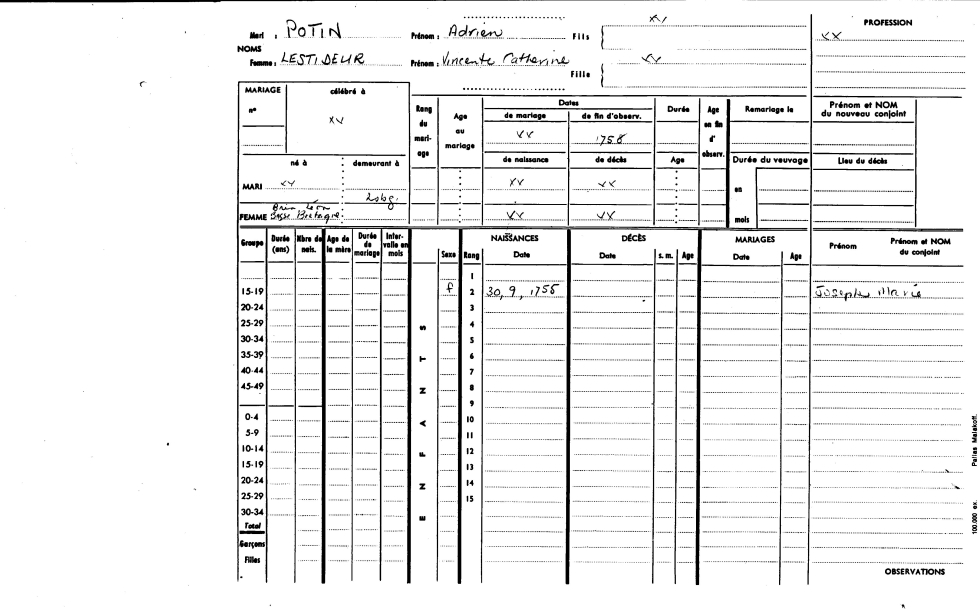 Mari : POTIN Prénom : Adrien Fils XV PROFESSION
XX
NOMS
Femme : LESTIDEUR Prénom : Vincente Catherine XX
Fille
MARIAGE célébré à
n° XV
Rang du mariage
Age au mariage
Dates
de mariage de fin d'observ.
XX 1758
Durée
Age en fin d'observ.
Remariage le
Prénom et NOM du nouveau conjoint
né à : demeurant à
de naissance de décès Age Durée du veuvage Lieu du décès
MARI XV XV XX en
Léon
FEMME Basse Bretagne XX XX mois
Groupe Durée (ans) Nbre de nais. Age de la mère Durée de mariage Intervalle en mois Sexe Rang
NAISSANCES DÉCÈS MARIAGES
Date Date s. m. Age Date Age Prénom Prénom et NOM du conjoint
1
15-19 f 2 30, 9, 1758 Joseph Marie
20-24 3
25-29 4
30-34 5
35-39 6
40-44 7
45-49 8
9
0-4 10
5-9 11
10-14 12
15-19 13
20-24 14
25-29 15
30-34
Total
Garçons
Filles
ENFANTS
OBSERVATIONS
100.000 ex. Pallas Malakoff.